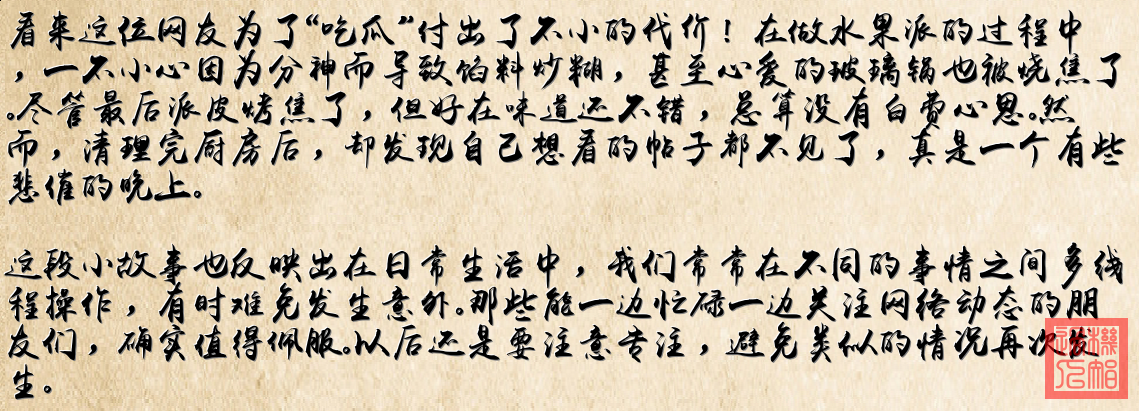 看来这位网友为了“吃瓜”付出了不小的代价！在做水果派的过程中
，一不小心因为分神而导致馅料炒糊，甚至心爱的玻璃锅也被烧焦了
。尽管最后派皮烤焦了，但好在味道还不错，总算没有白费心思。然
而，清理完厨房后，却发现自己想看的帖子都不见了，真是一个有些
悲催的晚上。
这段小故事也反映出在日常生活中，我们常常在不同的事情之间多线
程操作，有时难免发生意外。那些能一边忙碌一边关注网络动态的朋
友们，确实值得佩服。以后还是要注意专注，避免类似的情况再次发
生。